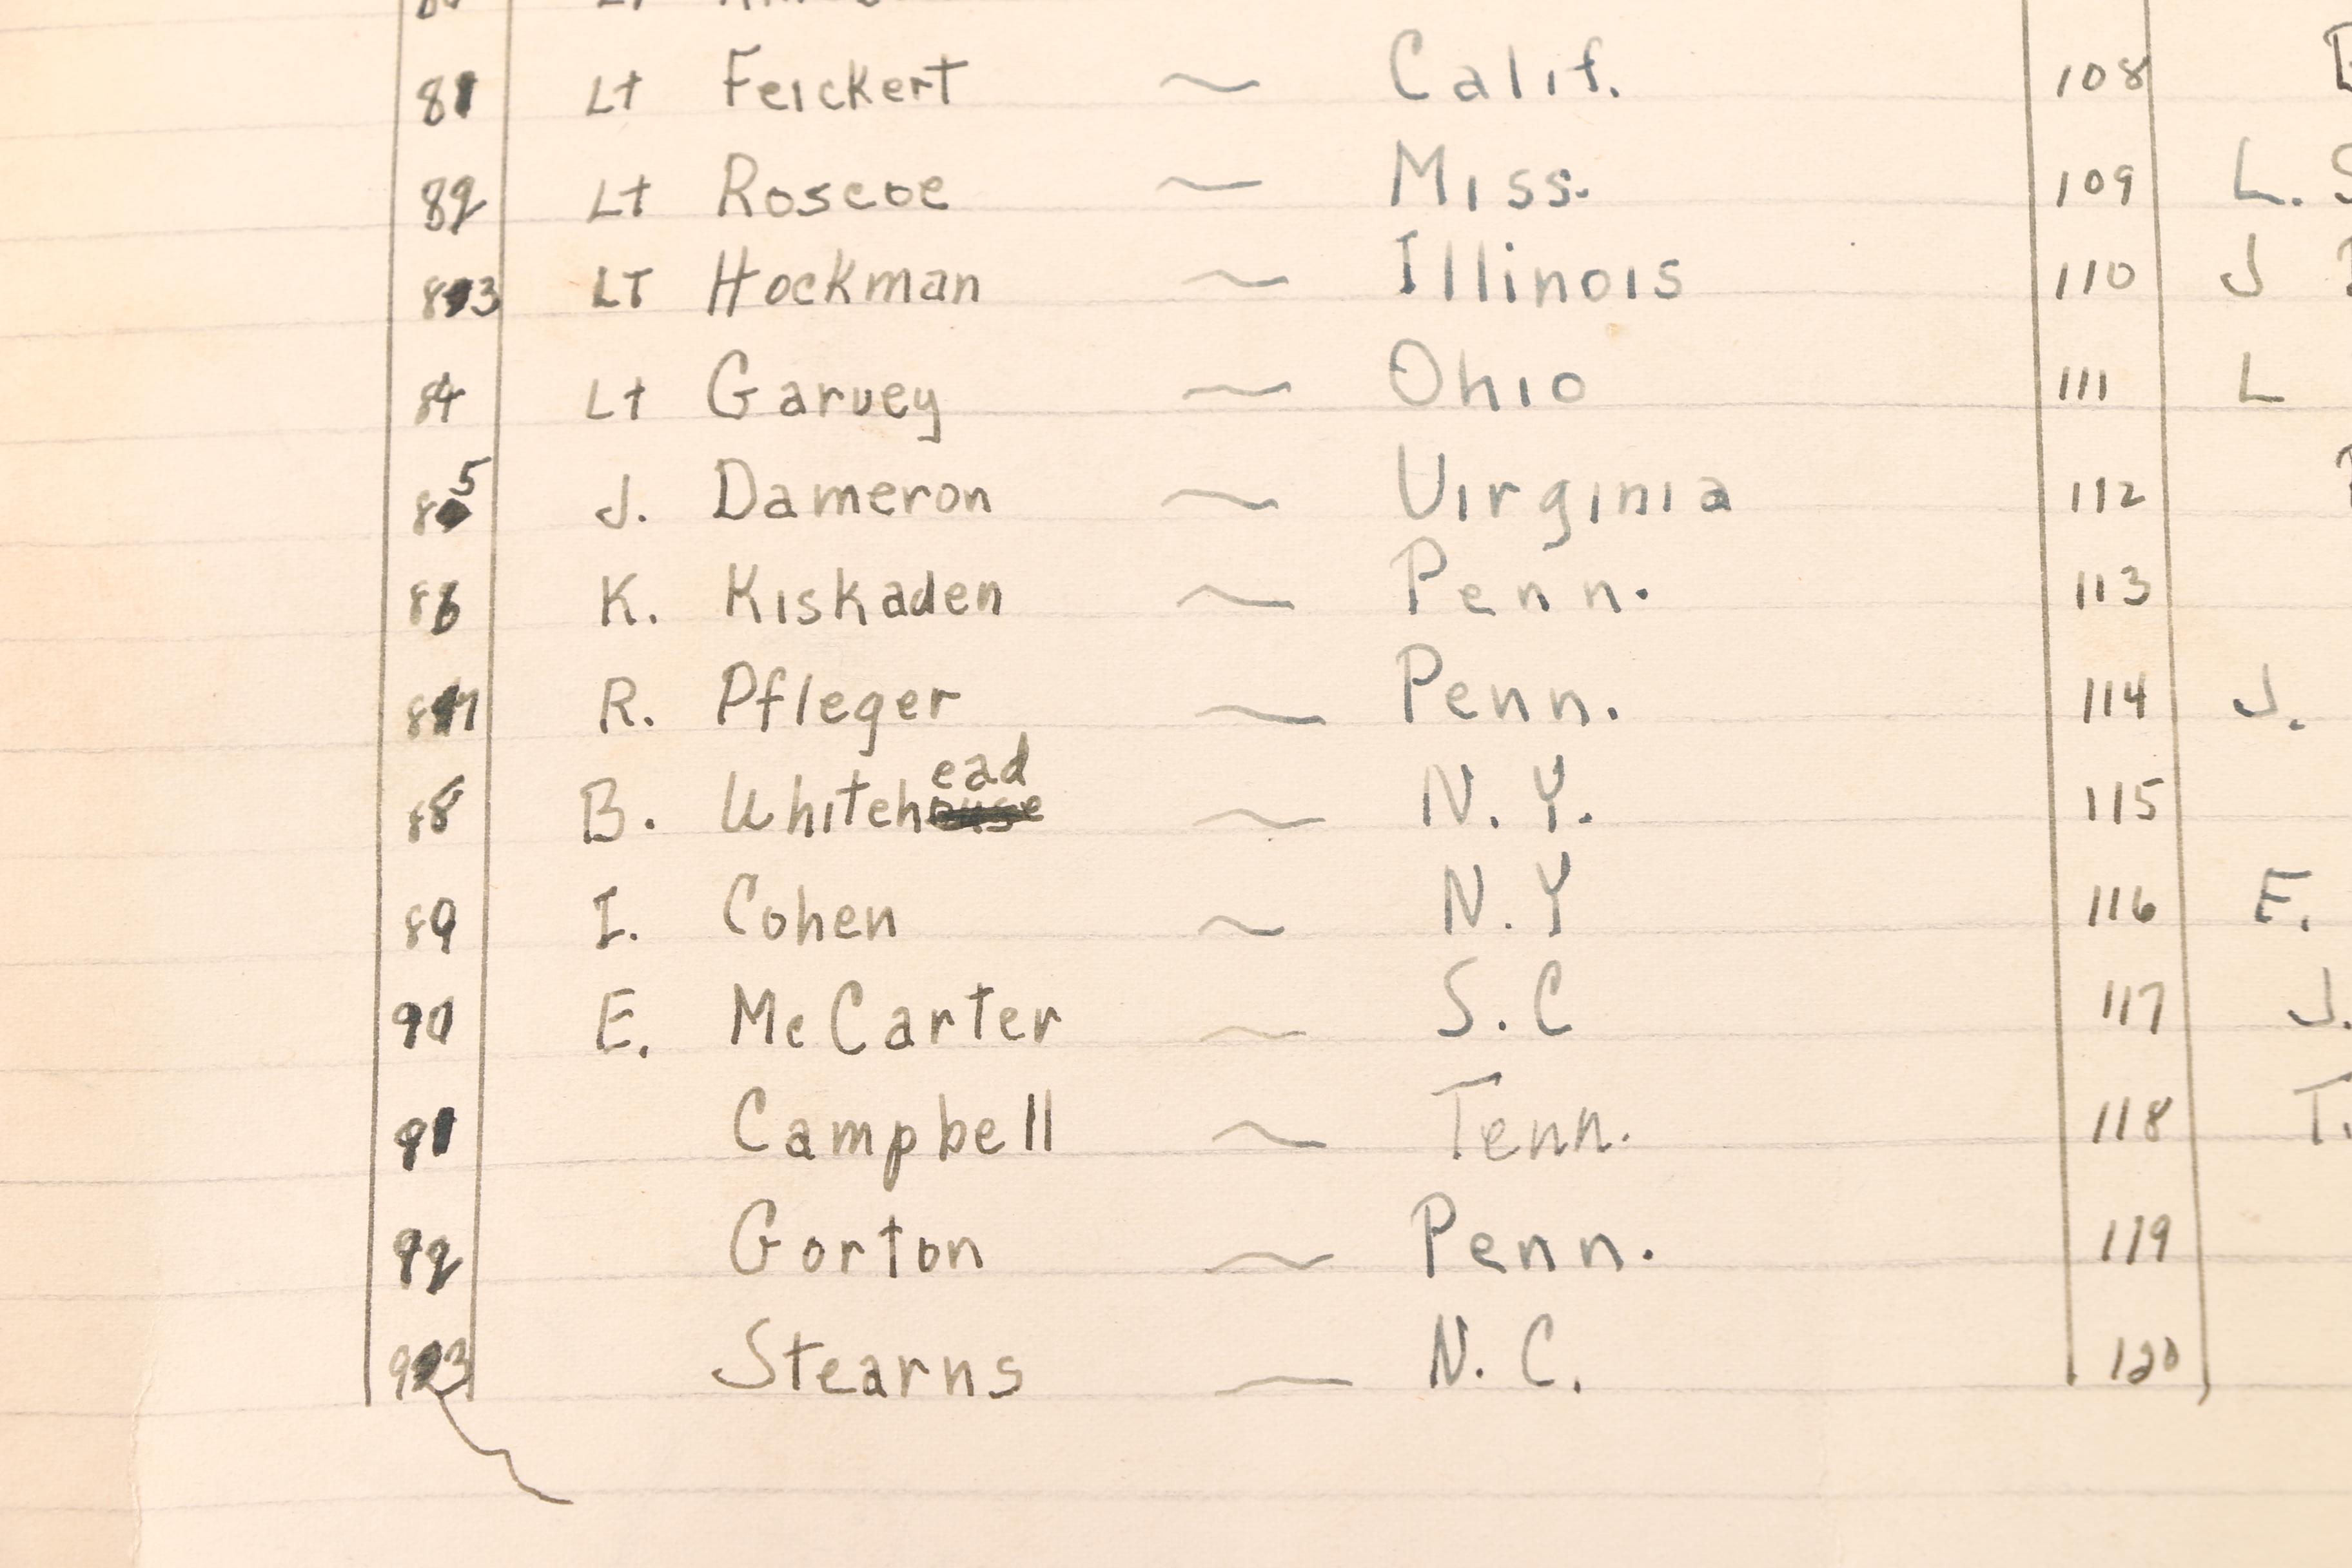 81 Lt Feickert ~ Calif. 108
82 Lt Roscoe ~ Miss. 109 L.
83 LT Hockman ~ Illinois 110 J
84 Lt Garvey ~ Ohio 111 L
85 J. Dameron ~ Virginia 112
86 K. Kiskaden ~ Penn. 113
87 R. Pfleger ~ Penn. 114 J.
88 B. Whitehead ~ N.Y. 115
89 I. Cohen ~ N.Y 116 E.
90 E. McCarter ~ S.C 117 J.
91 Campbell ~ Tenn. 118 T.
92 Gorton ~ Penn. 119
93 Stearns ~ N.C. 120